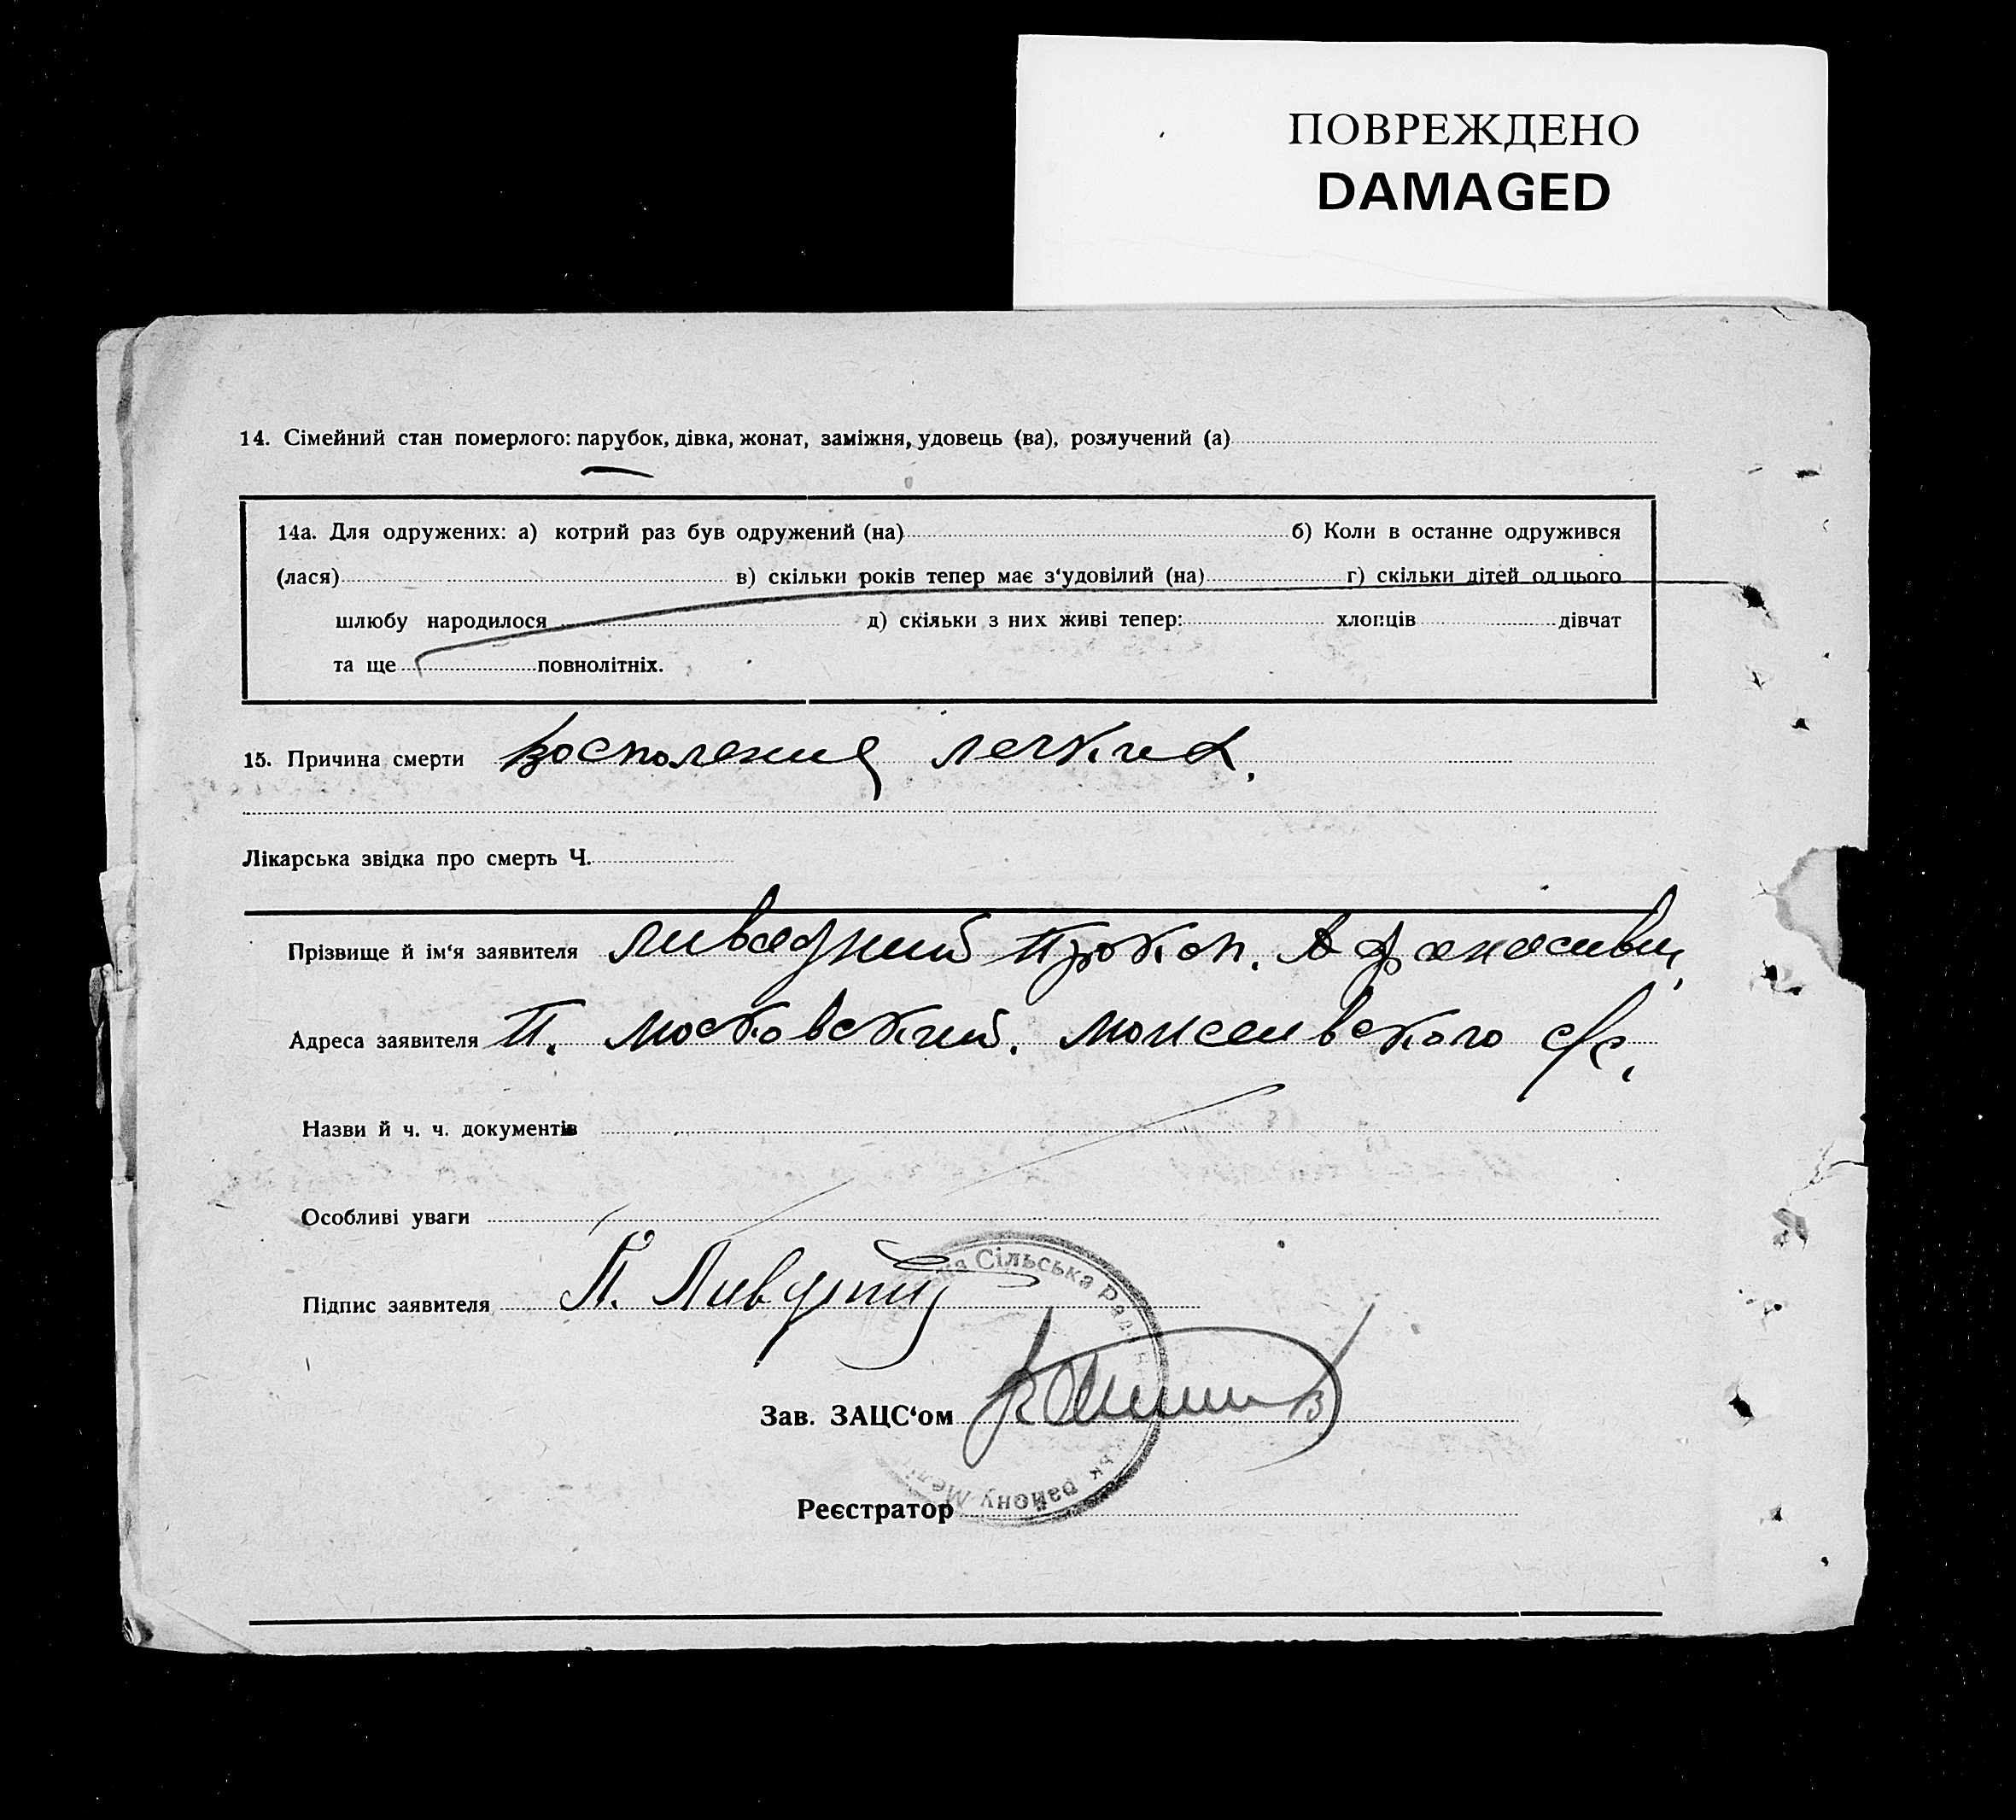 ПОВРЕЖДЕНО
DAMAGED
14. Сімейний стан померлого: парубок, дівка, жонат, заміжня, удовець (ва), розлучений (а)
14а. Для одружених: а) котрий раз був одружений (на) б) Коли в останнє одружився
(лася) в) скільки років тепер має з‘удовілий (на) г) скільки дітей од цього
шлюбу народилося д) скільки з них живі тепер: хлопців дівчат
та ще повнолітніх.
15. Причина смерти восполения легких.
Лікарська звідка про смерть Ч.
Прізвище й ім‘я заявителя Ливадний Прокоп. Афанасиви
Адреса заявителя П. Московский. с/с.
Назви й ч. ч. документів
Особливі уваги
Підпис заявителя П.
Сільська Рада
Зав. ЗАЦС‘ом
району
Реєстратор